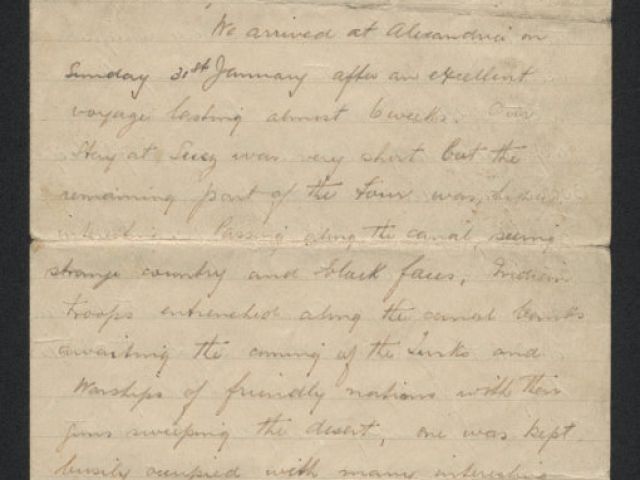 We arrived at Alexandria on
Sunday 31st January after an excellent
voyage lasting almost 6 weeks. Our
Stay at Suez was very short but the
remaining part of the tour was, highly
interesting. Passing along the canal, seeing
strange country and black faces, Indian
troops entrenched along the canal banks
awaiting the coming of the Turks and
Warships of friendly nations with their
guns sweeping the desert, one was kept
busily occupied with many interesting